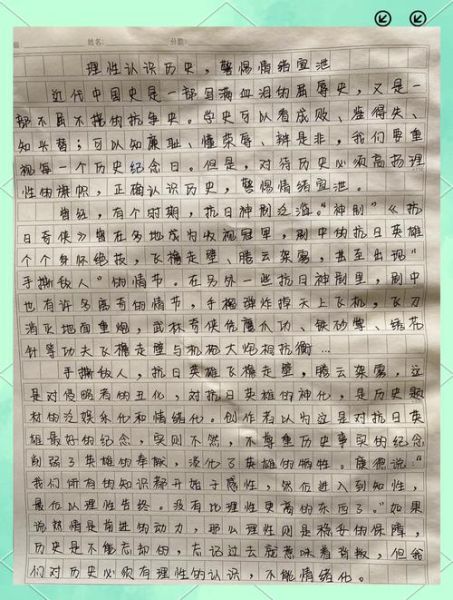 姓名: 分数:
理性认识历史，警惕情绪宣泄
近代中国史是一部写满血泪的屈辱史，又是一
部不屈不挠的抗争史。学史可以看成败、鉴得失、
知兴替；可以知廉耻、懂荣辱、辨是非，我们要重
视每一个历史纪念日。但是，对待历史必须高扬理
性的旗帜，正确认识历史，警惕情绪宣泄。
曾经，有个时期，抗日神剧泛滥。"神剧"《抗
日奇侠》曾在多地成为收视冠军，剧中的抗日英雄
个个身怀绝技，飞檐走壁、腾云驾雾，甚至出现"
手撕敌人"的情节。在另外一些抗日神剧里，剧中
也有许多离奇的情节，手榴弹炸掉天上飞机，飞刀
消灭地面重炮，武林奇侠凭鹰爪功、铁砂掌、绣花
针等功夫飞檐走壁与机枪大炮相抗衡…
手撕敌人，抗日英雄飞檐走壁，腾云驾雾，这
是对侵略者的丑化，对抗日英雄的神化，是历史题
材的泛娱乐化和情绪化。创作者以为这是对抗日英
雄最好的纪念，实则不然，不尊重历史事实的纪念
削弱了英雄的奉献，淡化了英雄的牺牲。康德说："
我们所有的知识都开始于感性，然后进入到知性，
最后以理性告终。没有比理性更高的东西了。"如果
说热情是前进的动力，那么理性则是稳妥的保障，
历史是不能忘却的，忘记过去就意味着背叛，但我
们对历史必须有理性的认识，不能情绪化。